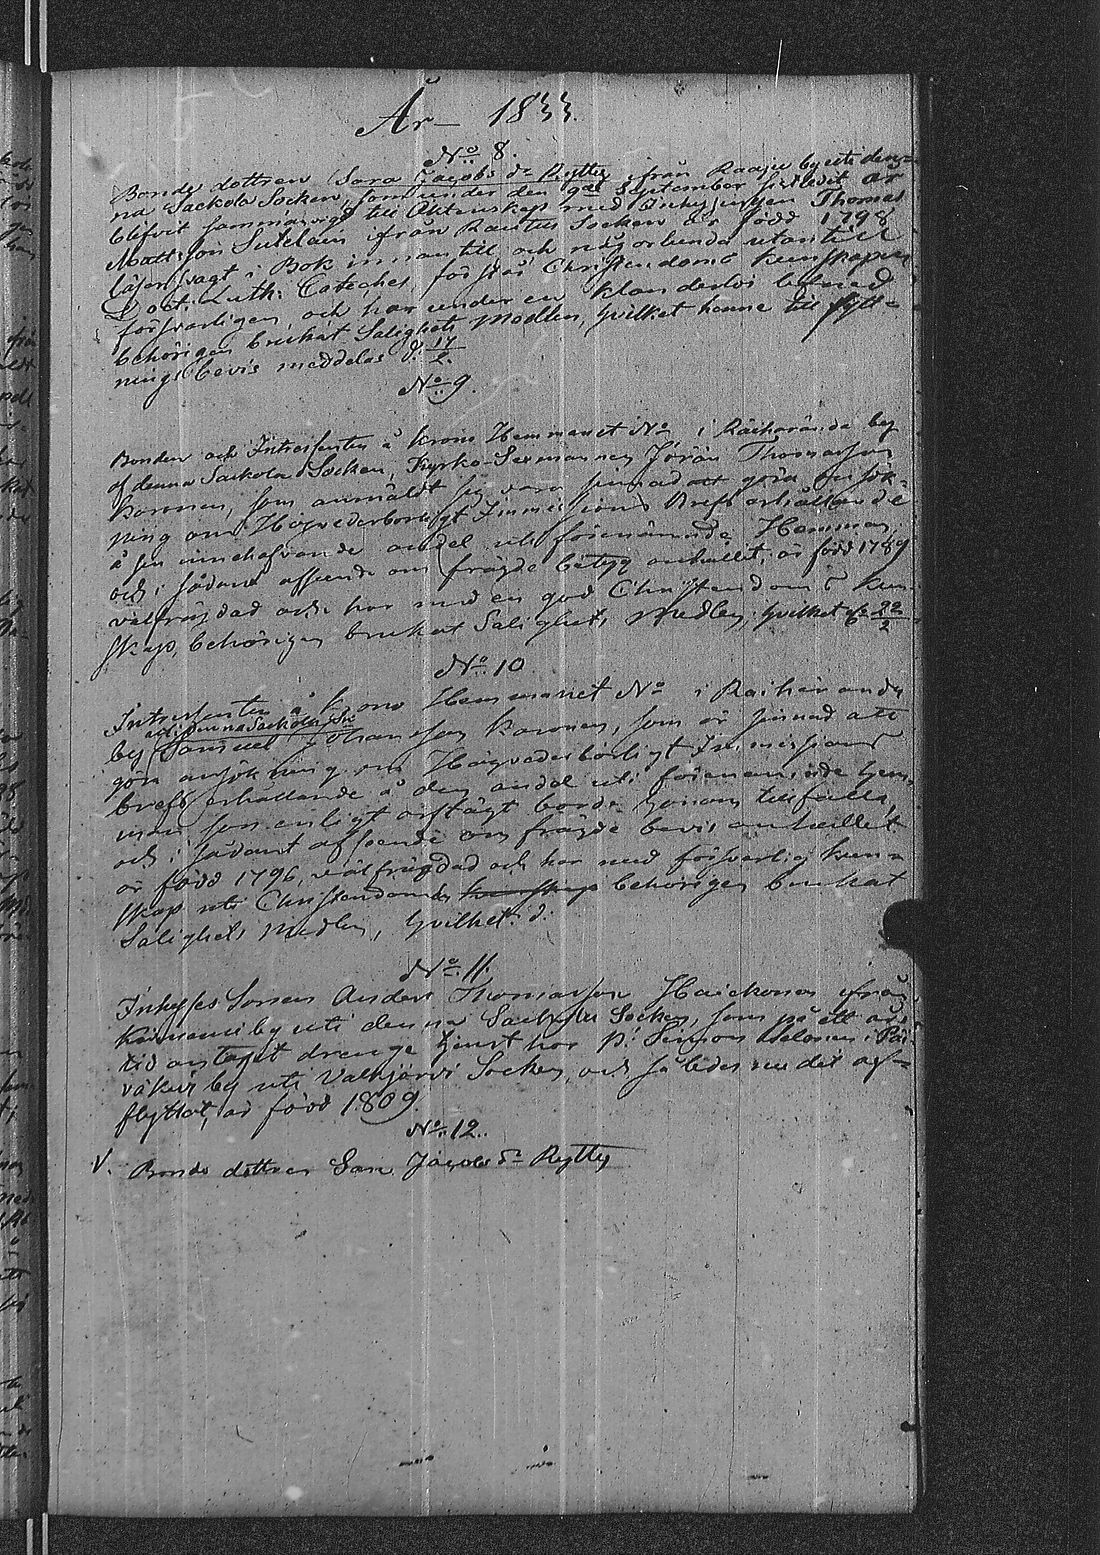 År 1833.
No 8.
Bonde dottren Sara Jacobs dr Rytty från Raaju by uti den-
na Sackola Socken, som under den 9de September sistledit år
blifvit sammanvigd till Äktenskap med Thomas
Mattsson från Rautus Socken är född 1798
läser svagt i Bok innantill och någorlunda utantill
Doct. Luth: Cateches förstår Christendoms kunskapen
försvarligen, och har under en klanderlös lefnad
behörigen brukat Salighets Medlen, hvilket henne till flytt-
nings bevis meddelas d. 17/2.
No 9.
Bonden och Intressenten å krono Hemmanet No i Räihäranda by
af denna Sackola Socken, Kyrko-Sexmannen Jöran Thomasson
Karonen, som anmäldt sig vara sinnad att göra ansök-
ning om Högvederborligt Immissions Bref erhållande
å sin innehafvande andel uti förenämnde Hemman,
och i sådant afseende om frägde betyg anhållit, är född 1789
välfrägdad och har med en god Christendoms kun-
skap, behörigen brukat Salighets Medlen, hvilket 22/2
No 10
Intressenten å krono Hemmanet No i Raiheranda
by uti denna Sackola Sn Samuel Johansson Karonen, som är sinnad att
göra ansökning om Högvederbörligt Immissions
bref erhållande å den andel uti förenämnde hem-
man som enligt borde honom tillfalla,
och i sådant afseende om frägde bevis anhållit
är född 1796, välfrägdad och har med försvarlig kun-
skap uti Christendomen kunskap behörigen brukat
Salighets Medlen, hvilket d.
No 11.
Inhyses Sonen Anders Thomasson Haickonen från
by uti denna Sackola Socken, som på ett års
tid antagit drenge tjenst hos B: Simon i Päi-
väkivi by uti Valkjärvi Socken, och således nu dit af-
flyttat, är född 1809.
No 12.
V. Bonde dottren Sara Jacobs dr Rytty